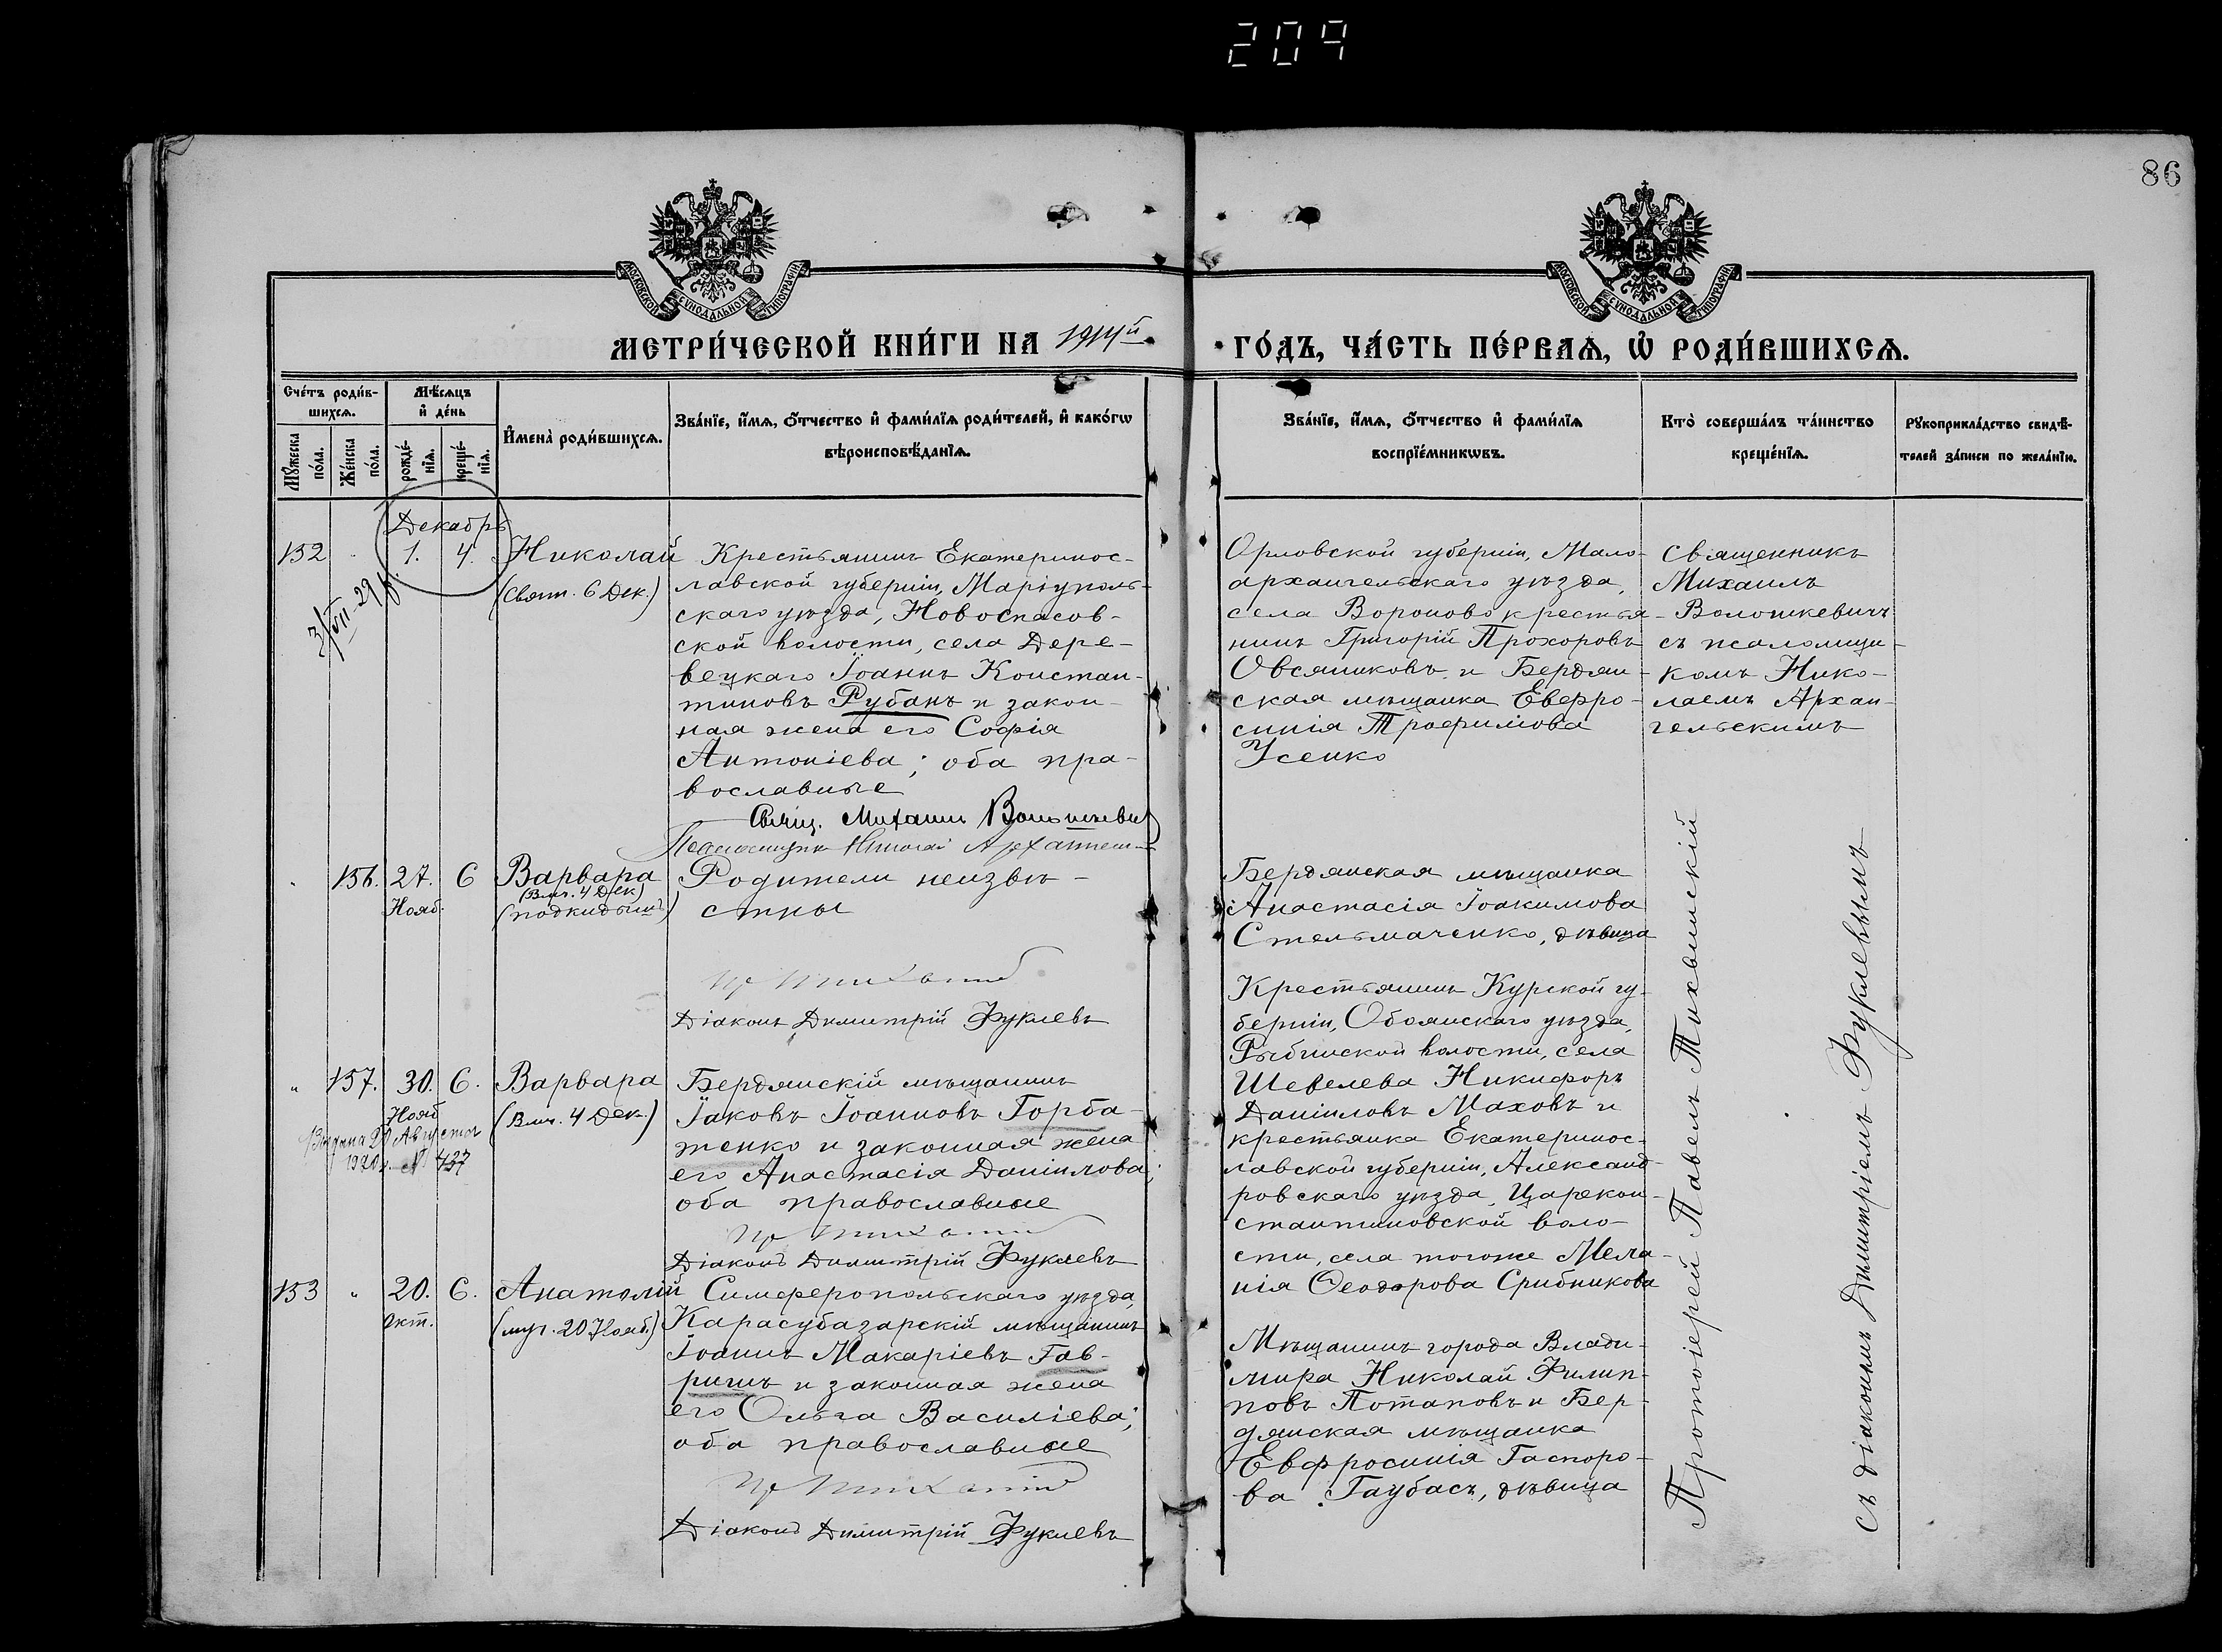 209
86
МОСКОВСКОЙ СѴНОДАЛЬНОЙ ТИПОГРАФІИ
МОСКОВСКОЙ СѴНОДАЛЬНОЙ ТИПОГРАФІИ
МЕТРИ́ЧЕСКОЙ КНИ́ГИ НА 1914й
ГО́ДЪ, ЧА́СТЬ ПЕ́РВАѦ, Ѡ҆ РОДИ́ВШИХСѦ.
Сче́тъ роди́в-
шихсѧ.
Мѣ́сѧцъ
и҆ де́нь
Мꙋ́жеска
по́ла.
Же́нска
по́ла.
рожде́-
нїѧ.
креще́-
нїѧ.
И҆мена̀ роди́вшихсѧ.
Зва́нїе, и҆́мѧ, ѻ҆́тчество и҆ фами́лїѧ роди́телей, и҆ како́гѡ
вѣроисповѣ́данїѧ.
Зва́нїе, и҆́мѧ, ѻ҆́тчество и҆ фами́лїѧ
воспрїе́мникѡвъ.
Кто̀ соверша́лъ та́инство
креще́нїѧ.
Рꙋкоприкла́дство свидѣ́-
телей за́писи по жела́нїю.
Декабрь
152 " 1. 4. Николай
(Свят. 6 Дек.)
3/VII-29
Крестьянинъ Екатеринос-
лавской губерніи, Маріуполь-
скаго уѣзда, Новоспасов-
ской волости, села Дере-
вецкаго Іоаннъ Констан-
тиновъ Рубанъ и закон-
ная жена его Софія
Антоніева; оба пра-
вославные
Свящ. Михаилъ Волошкевич
Псаломщикъ Николай Архангел
Орловской губерніи, Мало-
архангельскаго уѣзда,
села Вороново крестья-
нинъ Григорій Прохоровъ
Овсяниковъ и Бердян-
ская мѣщанка Евфро-
синія Трофимова
Усенко
Священникъ
Михаилъ
Волошкевичъ
съ псаломщи-
комъ Нико-
лаемъ Архан-
гельскимъ
" 156. 27. 6 Варвара
Нояб.
(Влмч. 4 Дек)
(подкидышъ)
Родители неизвѣ-
стны
Діаконъ Димитрій Фуклевъ
Бердянская мѣщанка
Анастасія Іоакимова
Стельмаченко, дѣвица
" 157. 30. 6. Варвара
Нояб.
(Влмч. 4 Дек.)
Выдана 20 Августа
1920 г. № 437
Бердянскій мѣщанинъ
Іаковъ Іоанновъ Горба-
тенко и законная жена
его Анастасія Даніилова;
оба православные
Діаконъ Димитрій Фуклевъ
Крестьянинъ Курской гу-
берніи, Обоянскаго уѣзда,
Рыбинской волости, села
Шевелева Никифоръ
Данііловъ Маховъ и
крестьянка Екатеринос-
лавской губерніи, Александ-
ровскаго уѣзда, Царекон-
стантиновской воло-
сти, села тогоже Мела-
нія Ѳеодорова Срибникова
153 " 20. 6. Анатолій
Окт.
(муч. 20 Нояб.)
Симферопольскаго уѣзда,
Карасубазарскій мѣщанинъ
Іоаннъ Макаріевъ Гав-
ришъ и законная жена
его Ольга Василіева;
оба православные
Діаконъ Димитрій Фуклевъ
Мѣщанинъ города Влади-
мира Николай Филип-
повъ Потаповъ и Бер-
дянская мѣщанка
Евфросинія Гаспоро-
ва Гаубасъ, дѣвица
Протоіерей Павелъ Тихвинскій
съ діакономъ Димитріемъ Фуклевымъ